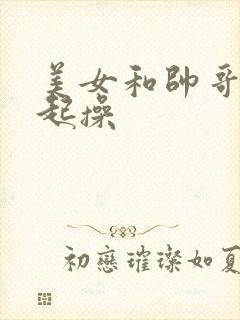 美女和帥哥
起操
初戀璀璨如夏